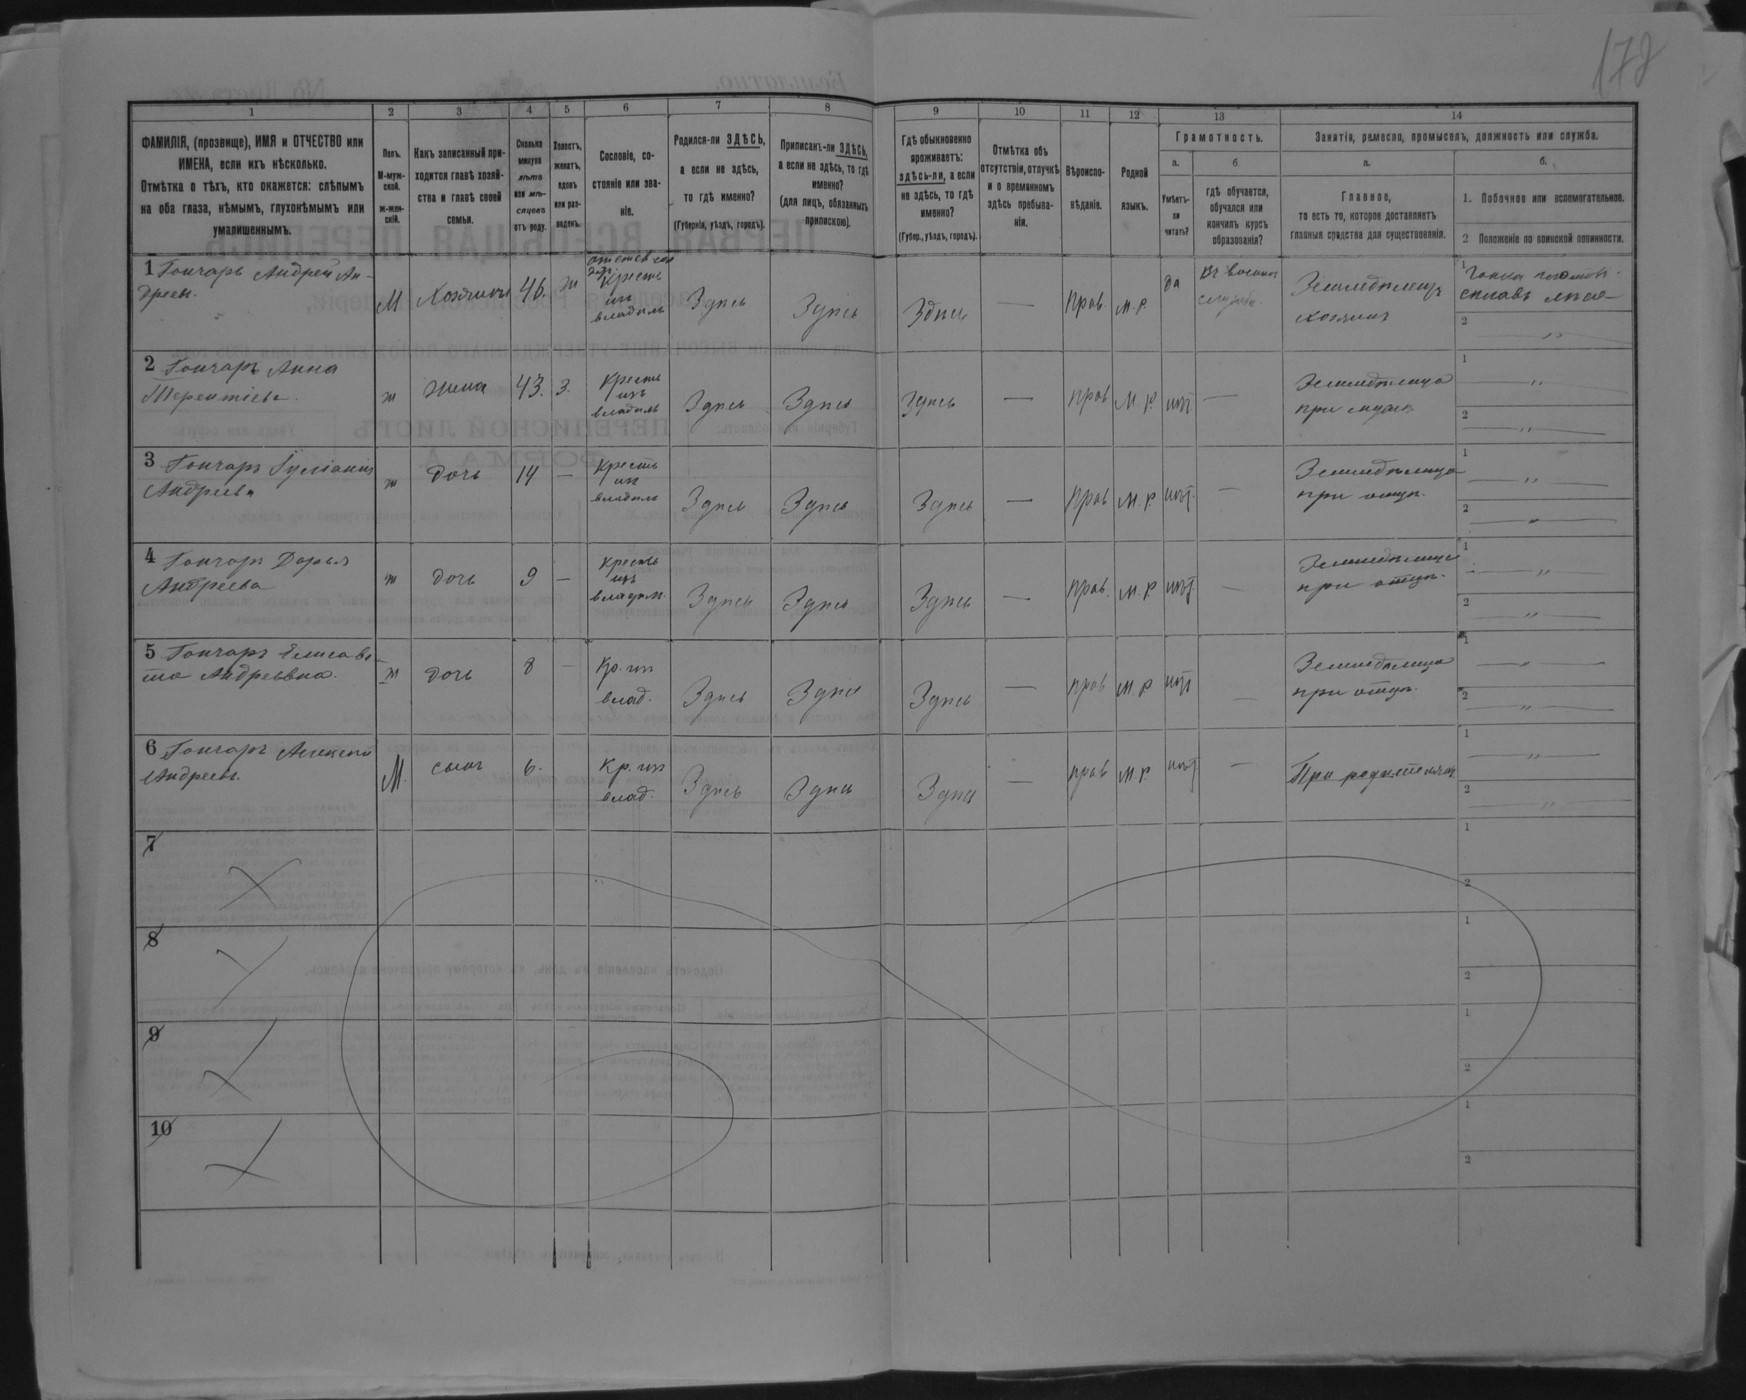 178
1 2 3 4 5 6 7 8 9 10 11 12 13 14
ФАМИЛІЯ, (прозвище), ИМЯ и ОТЧЕСТВО или
ИМЕНА, если ихъ нѣсколько.
Отмѣтка о тѣхъ, кто окажется: слѣпымъ
на оба глаза, нѣмымъ, глухонѣмымъ или
умалишеннымъ.
Полъ.
М-муж-
ской.
ж-жен-
скій.
Какъ записанный при-
ходится главѣ хозяй-
ства и главѣ своей
семьи.
Сколько
минуло
лѣтъ
или мѣ-
сяцевъ
отъ роду.
Холостъ,
женатъ,
вдовъ
или раз-
веденъ.
Сословіе, со-
стояніе или зва-
ніе.
Родился-ли ЗДѢСЬ,
а если не здѣсь,
то гдѣ именно?
(Губернія, уѣздъ, городъ).
Приписанъ-ли ЗДѢСЬ,
а если не здѣсь, то гдѣ
именно?
(для лицъ, обязанныхъ
припискою).
Гдѣ обыкновенно
проживаетъ:
здѣсь-ли, а если
не здѣсь, то гдѣ
именно?
(Губер., уѣздъ, городъ).
Отмѣтка объ
отсутствіи, отлучкѣ
и о временномъ
здѣсь пребыва-
ніи.
Вѣроиспо-
вѣданіе.
Родной
языкъ.
Грамотность.
а. б.
Умѣетъ-
ли
читать?
гдѣ обучается,
обучался или
кончилъ курсъ
образованія?
Занятія, ремесло, промыселъ, должность или служба.
а. б.
Главное,
то есть то, которое доставляетъ
главныя средства для существованія.
1. Побочное или вспомогательное.
2 Положеніе по воинской повинности.
1 Гончаръ Андрей Ан-
дреев.
М Хозяинъ 46. ж
Крестъ
изъ
владѣль
Здѣсь Здѣсь Здѣсь — Прав М.Р. да
въ военной
службѣ.
Земледѣлецъ
хозяинъ
1
сплавъ лѣса
2 — „ —
2 Гончаръ Анна
Терентіева.
ж жена 43. З.
Крестъ
изъ
владѣль
Здѣсь Здѣсь Здѣсь — прав М.Р. нѣт —
Земледѣлица
при мужѣ
1 — „ —
2 — „ —
3 Гончаръ Іуліанія
Андреева
ж дочь 14 —
Крестъ
изъ
владѣль
Здѣсь Здѣсь Здѣсь — прав М.Р. нѣт. —
Земледѣлица
при отцѣ.
1 — „ —
2 — „ —
4 Гончаръ Дарья
Андреева
ж дочь 9 —
Крестъ
изъ
владѣл.
Здѣсь Здѣсь Здѣсь — прав. М.Р нѣт —
Земледѣлица
при отцѣ.
1 — „ —
2 — „ —
5 Гончаръ Елисаве-
та Андреевна.
ж дочь 8 —
Кр. изъ
влад.
Здѣсь Здѣсь Здѣсь — прав М.Р нѣт —
Земледѣлица
при отцѣ.
1 — „ —
2 — „ —
6 Гончаръ Алексѣй
Андреевъ.
М. сынъ 6.
Кр. изъ
влад.
Здѣсь Здѣсь Здѣсь — прав М.Р нѣт —
При родителяхъ
1 — „ —
2 — „ —
7
1
2
8
1
2
9
1
2
10
1
2